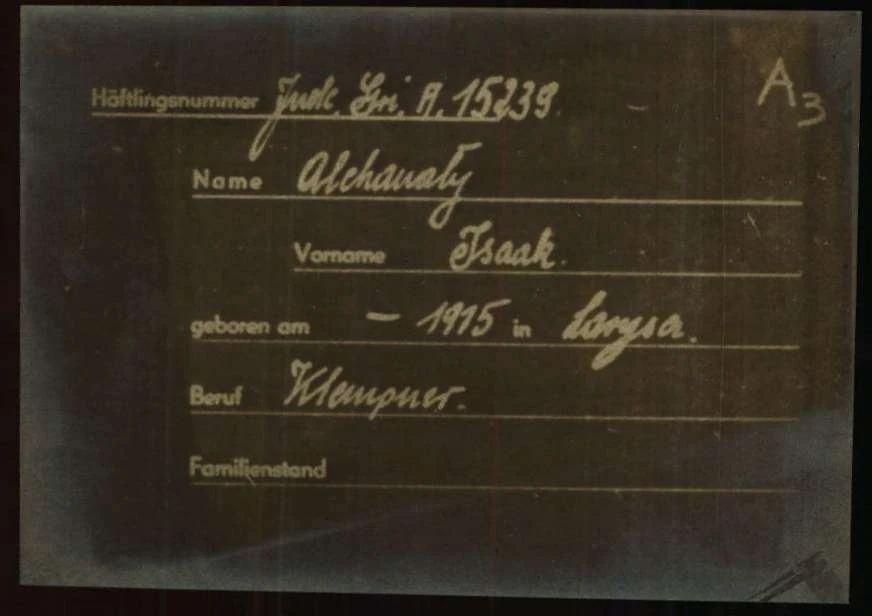 Häftlingsnummer Jude Gri. A. 15239. A3
Name Alchanaty
Vorname Isaak.
geboren am – 1915 in Laryssa.
Beruf Klempner.
Familienstand